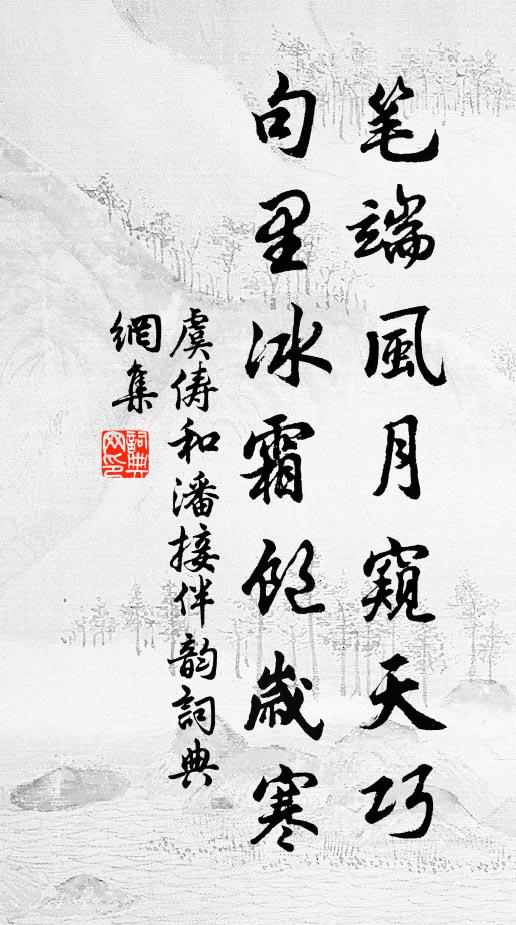 笔端風月窺天巧
句里冰霜飽歲寒
虞儔和潘接伴韵詞典
網集
詞典網印